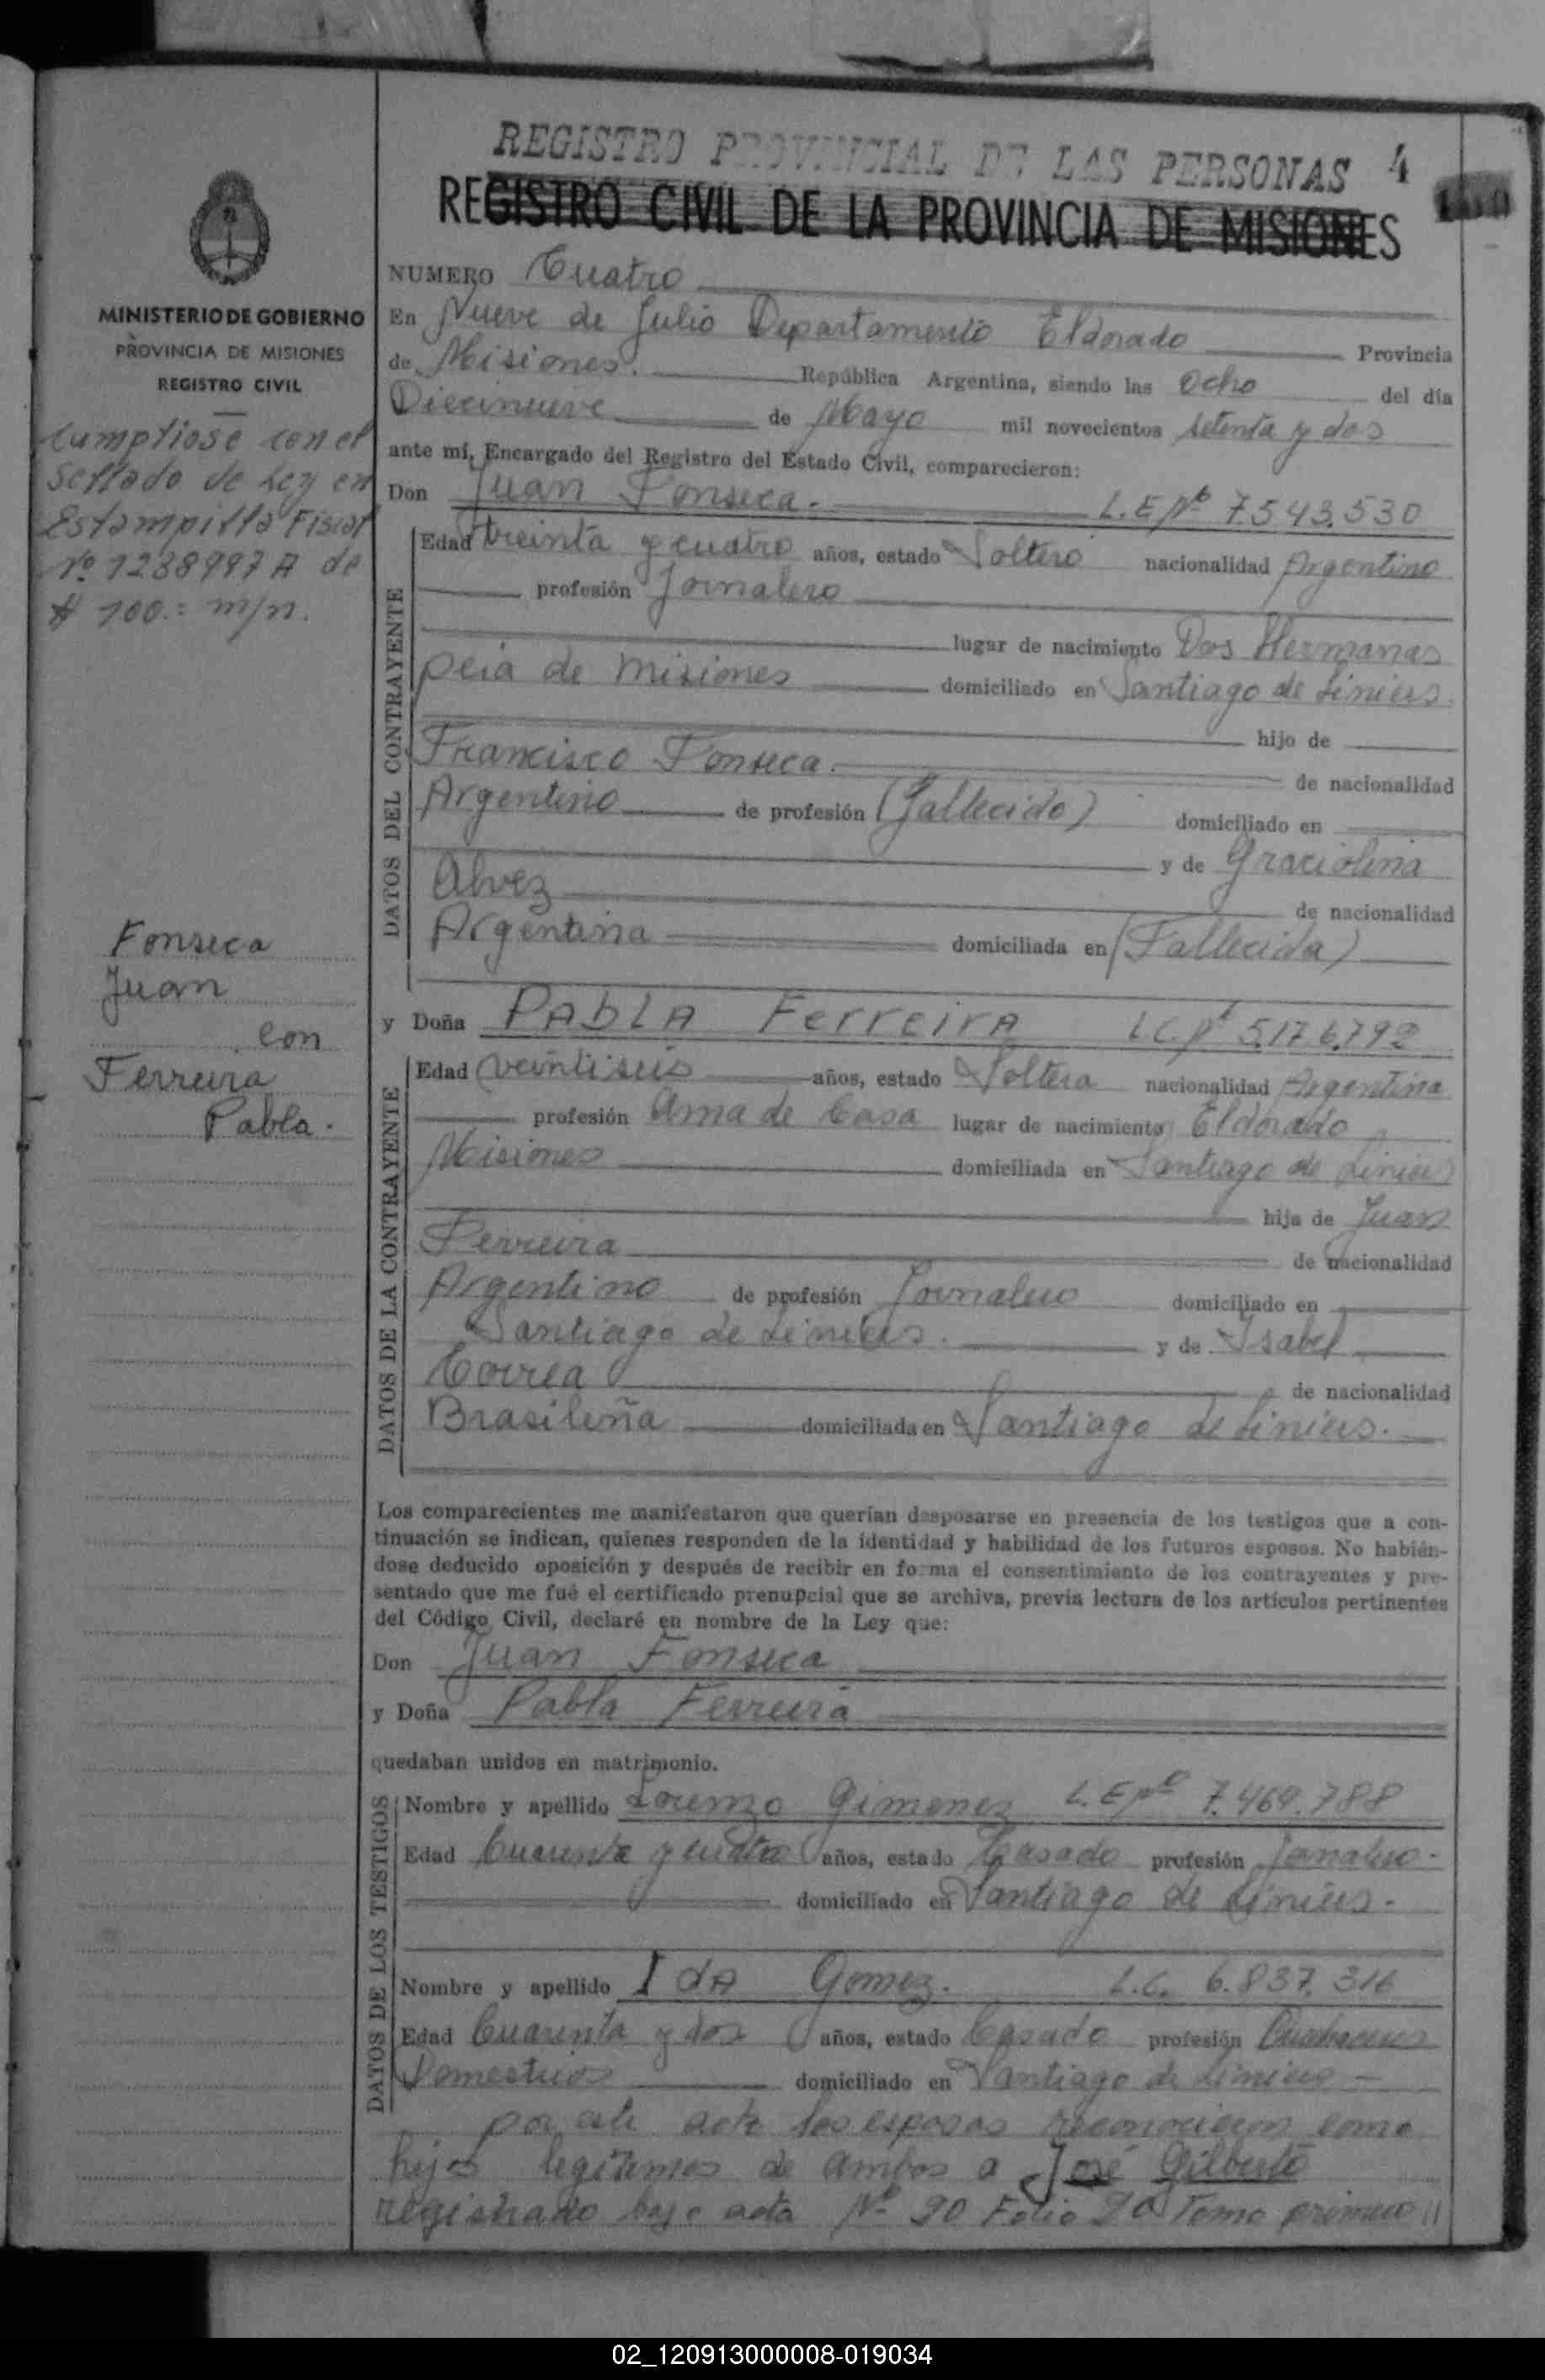 REGISTRO PROVINCIAL DE LAS PERSONAS 4
REGISTRO CIVIL DE LA PROVINCIA DE MISIONES
MINISTERIO DE GOBIERNO
PROVINCIA DE MISIONES
REGISTRO CIVIL
Cumpliose con el
Sellado de Ley en
Estampilla Fiscal
nº 1238997 A de
$ 100.= m/n.
Fonseca
Juan
con
Ferreira
Pabla.
NUMERO Cuatro
En Nueve de Julio Departamento Eldorado Provincia
de Misiones. República Argentina, siendo las Ocho del día
Diecinueve de Mayo mil novecientos setenta y dos
ante mí, Encargado del Registro del Estado Civil, comparecieron:
Don Juan Fonseca. L.E Nº 7.543.530
DATOS DEL CONTRAYENTE
Edad treinta y cuatro años, estado Soltero nacionalidad Argentino
profesión Jornalero
lugar de nacimiento Dos Hermanas
pcia de Misiones domiciliado en Santiago de Liniers.
hijo de
Francisco Fonseca. de nacionalidad
Argentino de profesión (Fallecido) domiciliado en
y de Graciolina
Alvez de nacionalidad
Argentina domiciliada en (Fallecida)
y Doña PAbLA FerreirA L.C. Nº 5.176.792
DATOS DE LA CONTRAYENTE
Edad veintiseis años, estado Soltera nacionalidad Argentina
profesión Ama de Casa lugar de nacimiento Eldorado
Misiones domiciliada en Santiago de Liniers
hija de Juan
Ferreira de nacionalidad
Argentino de profesión Jornalero domiciliado en
Santiago de Liniers. y de Isabel
Correa de nacionalidad
Brasileña domiciliada en Santiago de Liniers.
Los comparecientes me manifestaron que querían desposarse en presencia de los testigos que a con-
tinuación se indican, quienes responden de la identidad y habilidad de los futuros esposos. No habién-
dose deducido oposición y después de recibir en forma el consentimiento de los contrayentes y pre-
sentado que me fué el certificado prenupcial que se archiva, previa lectura de los artículos pertinentes
del Código Civil, declaré en nombre de la Ley que:
Don Juan Fonseca
y Doña Pabla Ferreira
quedaban unidos en matrimonio.
DATOS DE LOS TESTIGOS
Nombre y apellido Lorenzo Gimenez L.E Nº 7.469.788
Edad Cuarenta y cuatro años, estado Casado profesión Jornalero.
domiciliado en Santiago de Liniers.
Nombre y apellido IdA Gomez. L.C. 6.837.316
Edad Cuarenta y dos años, estado Casado profesión Quehaceres
Domesticos domiciliado en Santiago de Liniers
por este acto los esposos reconocieron como
hijos legitimos de ambos a José Gilberto
registrado bajo acta Nº 90 Folio Tomo primero
02_120913000008-019034